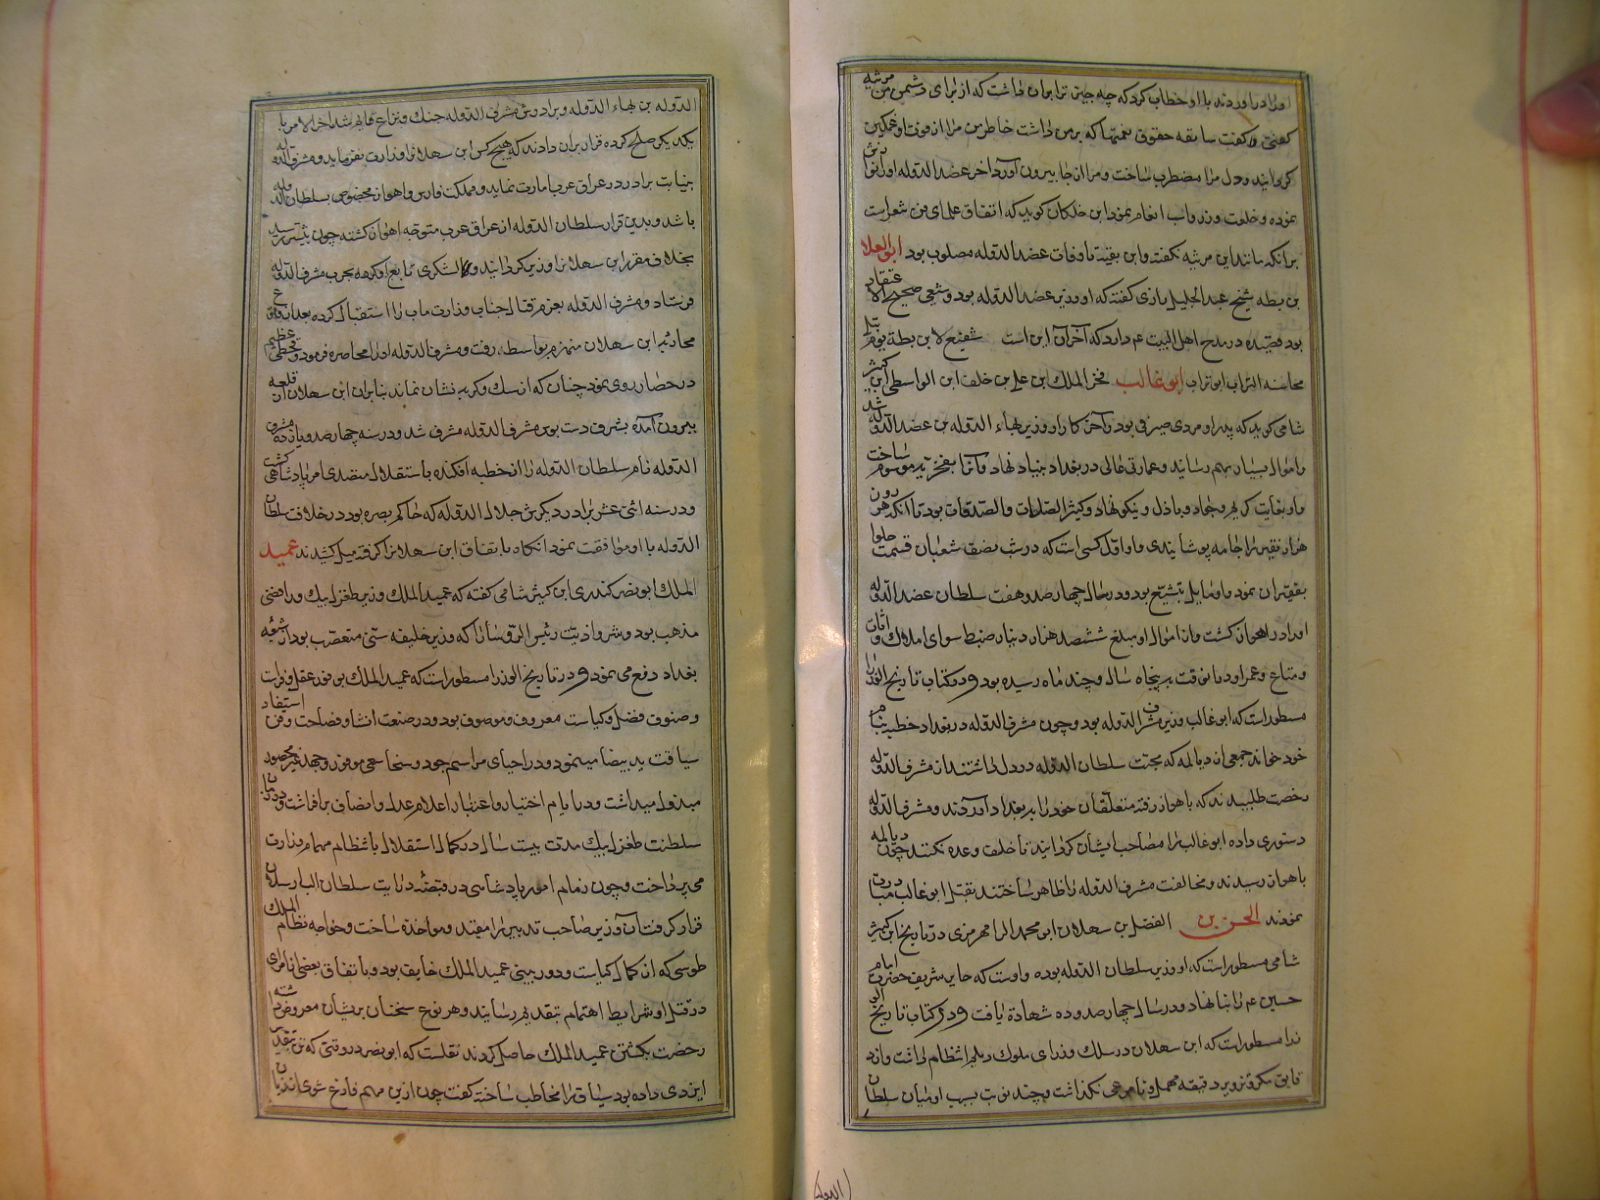 او را در آوردند با او خطاب کرد که چه چیز ترا بران داشت که از برای دشمن من مرثیه
کفتی او کفت سابقه حقوق نعمتها که بر من داشت خاطر من مرا از فوت او غمکین
کردانید و دل مرا مضطرب ساخت و مرا از جا بیرون آورد آخر عضد الدوله او را نوازش
نموده و خلعت و زر و اسب انعام نمود ابن خلکان کوید که اتفاق علمای فن شعر است
برانکه مانند این مرثیه نکفته و ابن بقیه تا وفات عضد الدوله مصلوب بود ابو العلا
بن بطه شیخ عبد الجلیل رازی کفته که او وزیر عضد الدوله بود و شیعی صحیح الاعتقاد
بود قصیده در مدح اهل البیت ع م دارد که آخر آن این است شفیع لابن بطة یوم تبلی
محاسنه التراب ابو تراب ابو غالب فخر الملک بن علی بن خلف ابن الواسطی ابن کثیر
شامی کوید که پدر او مردی صیرفی بود و آخر کار او وزیر بهاء الدوله بن عضد الدوله شد
و اموال بسیار بهم رسانید و عمارتی عالی در بغداد بنیاد نهاد و آنرا بفخریه موسوم ساخت
و او بغایت کریم و جواد و باذل و نیکو نهاد و کثیر الصلات و الصدقات بود تا آنکه هر روز
هزار فقیر را جامه پوشانیدی و او اول کسی است که در شب نصف شعبان قسمت حلوا
بفقیران نمود و مایل بتشیع بود و در سال چهار صد و هفت سلطان عضد الدوله
او را در اهواز کشت و از اموال او مبلغ ششصد هزار دینار ضبط سوای املاک و اثاث
و متاع و عمر او در انوقت بر پنجاه سال و چند ماه رسیده بود و در کتاب تاریخ الوزرا
مسطور است که ابو غالب وزیر مشرف الدوله بود و چون مشرف الدوله در بغداد خطبه بنام
خود خواند جمعی از دیالمه که محبت سلطان الدوله در دل داشتند از مشرف الدوله
رخصت طلبیدند که باهواز رفته متعلقان خود را ببغداد آوردند و مشرف الدوله
دستوری داده ابو غالب را مصاحب ایشان کردانید تا خلف وعده نکنند چون دیالمه
باهواز رسیدند و مخالفت مشرف الدوله را ظاهر ساختند بقتل ابو غالب مبادرت
نمودند الحسن بن الفضل بن سهلان ابو محمد الرامهرمزی در تاریخ ابن کثیر
شامی مسطور است که او وزیر سلطان الدوله بوده و اوست که حایر شریف حضرت امام
حسین ع م را بنا نهاد و در سال چهار صد و ده شهادة یافت و در کتاب تاریخ الو
زرا مسطور است که ابن سهلان در سلک وزرای ملوک دیلم انتظام داشت و از د
قایق مکر و تزویر دقیقه مهمل و نامرعی نکذاشت و چند نوبت بسبب او میان سلطان
(الدوله
الدوله بن بهاء الدوله و برادرش مشرف الدوله جنک و نزاع قایم شد آخر الامر با
یکدیکر صلح کرده قرار بران دادند که هیچ کس ابن سهلان را وزارت نفرماید و مشرف الدوله
بنیابت برادر در عراق عرب امارت نماید و مملکت فارس و اهواز مخصوص بسلطان الدوله
باشد و بدین قرار سلطان الدوله از عراق عرب متوجه اهواز کشته چون بتستر رسید
بخلاف مقرر ابن سهلان را وزیر کردانید و با لشکری تابع او کرده بحرب مشرف الدوله
فرستاد و مشرف الدوله بعزم قتال جناب وزارت ماب را استقبال کرده بعد از وقوع
محاربه ابن سهلان منهزم بواسطه رفت و مشرف الدوله او را محاصره فرمود و قحطی عظیم
در حصار روی نمود چنان که از سک و کربه نشان نماند بنابران ابن سهلان از قلعه
بیرون آمده بشرف دست بوس مشرف الدوله مشرف شد و در سنه چهار صد و یازده مشرف
الدوله نام سلطان الدوله را از خطبه افکنده باستقلال متصدی امر پادشاهی کشت
و در سنه اثنی عشر برادر دیکرش جلال الدوله که حاکم بصره بود در خلاف سلطان
الدوله با او موافقت نمود انکاه باتفاق ابن سهلان را کرفته میل کشیدند عمید
الملک ابو نصر کندری ابن کثیر شامی کفته که عمید الملک وزیر طغرل بیک و رافضی
مذهب بود و شر و اذیت رئیس الرؤسا را که وزیر خلیفه سنی متعصب بود از شیعه
بغداد دفع می نمود و در تاریخ الوزرا مسطور است که عمید الملک بوفور عقل و فراست
و صنوف فضل و کیاست معروف و موصوف بود و در صنعت انشا و فصاحت و فن استیفا
سیاقت ید بیضا مینمود و در احیای مراسم جود و سخا سعی موفور و جهد غیر محصور
مبذول میداشت و در ایام اختیار و اعتبار اعلام عدل و انصاف بر افراشت و در زمان
سلطنت طغرل بیک مدت بیست سال در کمال استقلال بانتظام مهام وزارت
می پرداخت و چون زمام امور پادشاهی در قبضه درایت سلطان الب ارسلان
قرار کرفت آن وزیر صاحب تدبیر را مقید و مواخذ ساخت و خواجه نظام الملک
طوسی که از کمال کیاست و دوربینی عمید الملک خایف بود و باتفاق بعضی از امرای
در قتل او شرایط اهتمام بتقدیم رسانید و هر نوع سخنان پریشان معروض داشته
رخصت بکشتن عمید الملک حاصل کردند نقلست که ابو نصر در وقتی که تن بتقدیر
ایزدی داده بود سیاف را مخاطب ساخته کفت چون ازین مهم فارغ شوی از زبان